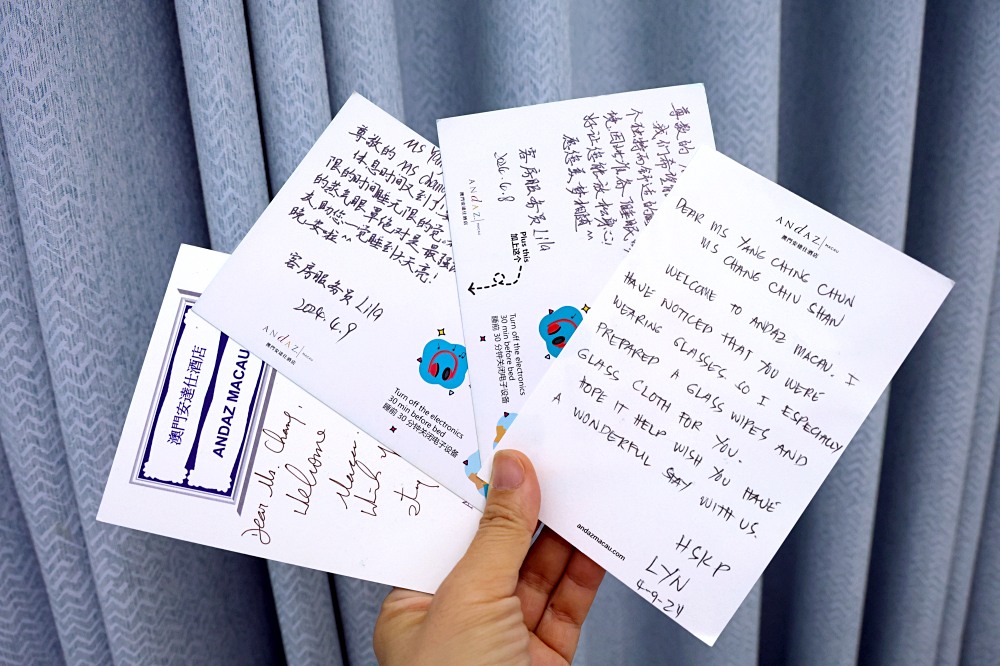 澳門安達仕酒店
ANDAZ MACAU
Dear Ms. Chang.
Welcome
MS
尊敬的 MS Chan
休息时间又到了
限的时间睡无限的觉
的蒸气眼罩绝对是最强
友,助您一觉睡到大天亮!
晚安啦^^
客房服务员 Lila
2024.4.9
ANdAZ MACAU
澳門安達仕酒店
Turn off the electronics
30 min before bed
睡前 30 分钟关闭电子设备
尊敬的
我们希望
好让您能放松身心
愿您美梦相随^^
客房服务员 Lila
4.8
ANdAZ MACAU
澳門安達仕酒店
Plus this
加上这个
Turn off the electronics
30 min before bed
睡前 30 分钟关闭电子设备
ANdAZ MACAU
澳門安達仕酒店
DEAR MS YANG CHING CHUN
MS CHANG CHIU SHAN
WELCOME TO ANDAZ MACAU. I
HAVE NOTICED THAT YOU WERE
WEARING GLASSES. SO I ESPECIALLY
PREPARED A GLASS WIPES AND
GLASS CLOTH FOR YOU.
HOPE IT HELP WISH YOU HAVE
A WONDERFUL STAY WITH US.
HSKP
LYN
4-9-24
andazmacau.com